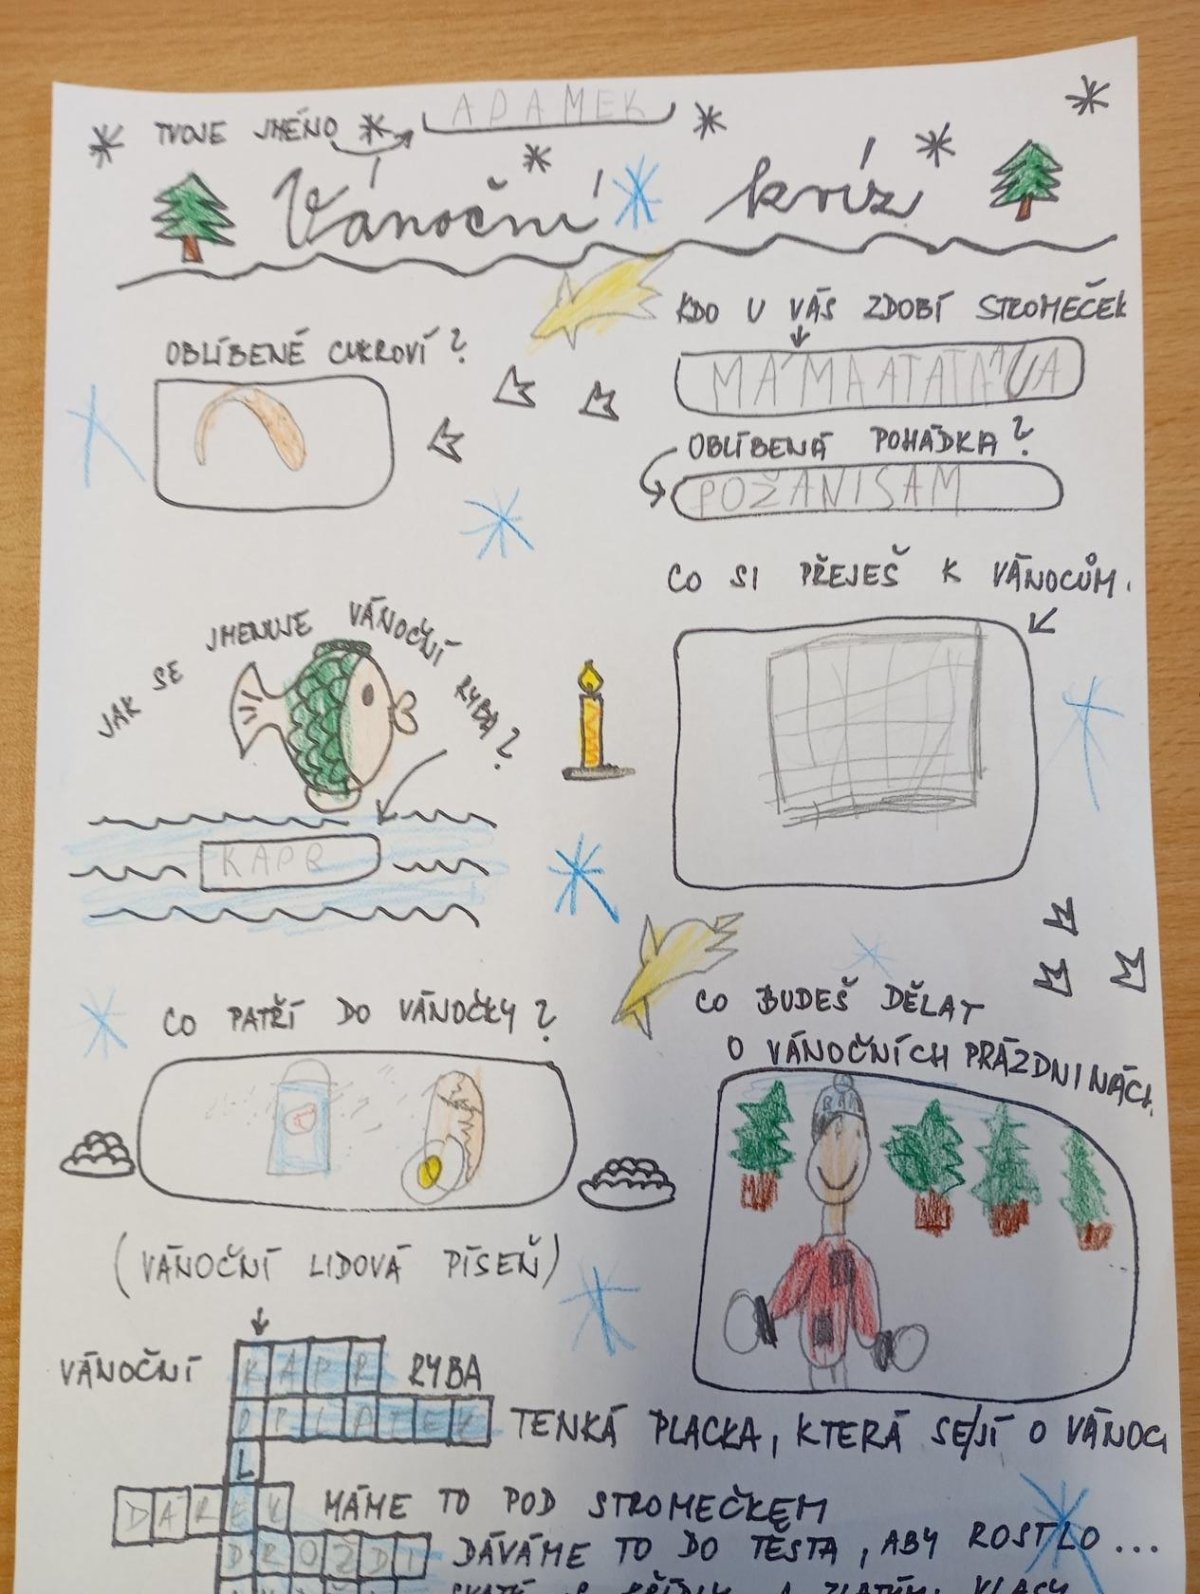 TVOJE JMÉNO
ADAMEK
Vánoční kvíz
KDO U VÁS ZDOBÍ STROMEČEK
MÁMAATATAUA
OBLÍBENÉ CUKROVÍ?
OBLÍBENÁ POHÁDKA?
POŽANISAM
CO SI PŘEJEŠ K VÁNOCŮM.
JAK SE JMENUJE VÁNOČNÍ RYBA?
KAPR
CO PATŘÍ DO VÁNOČKY?
CO BUDEŠ DĚLAT
O VÁNOČNÍCH PRÁZDNINÁCH
(VÁNOČNÍ LIDOVÁ PÍSEŇ)
VÁNOČNÍ KAPR RYBA
OPLATEK TENKÁ PLACKA, KTERÁ SE JÍ O VÁNOC
L
DÁREK MÁME TO POD STROMEČKEM
DROŽDI DÁVÁME TO DO TĚSTA, ABY ROSTLO...